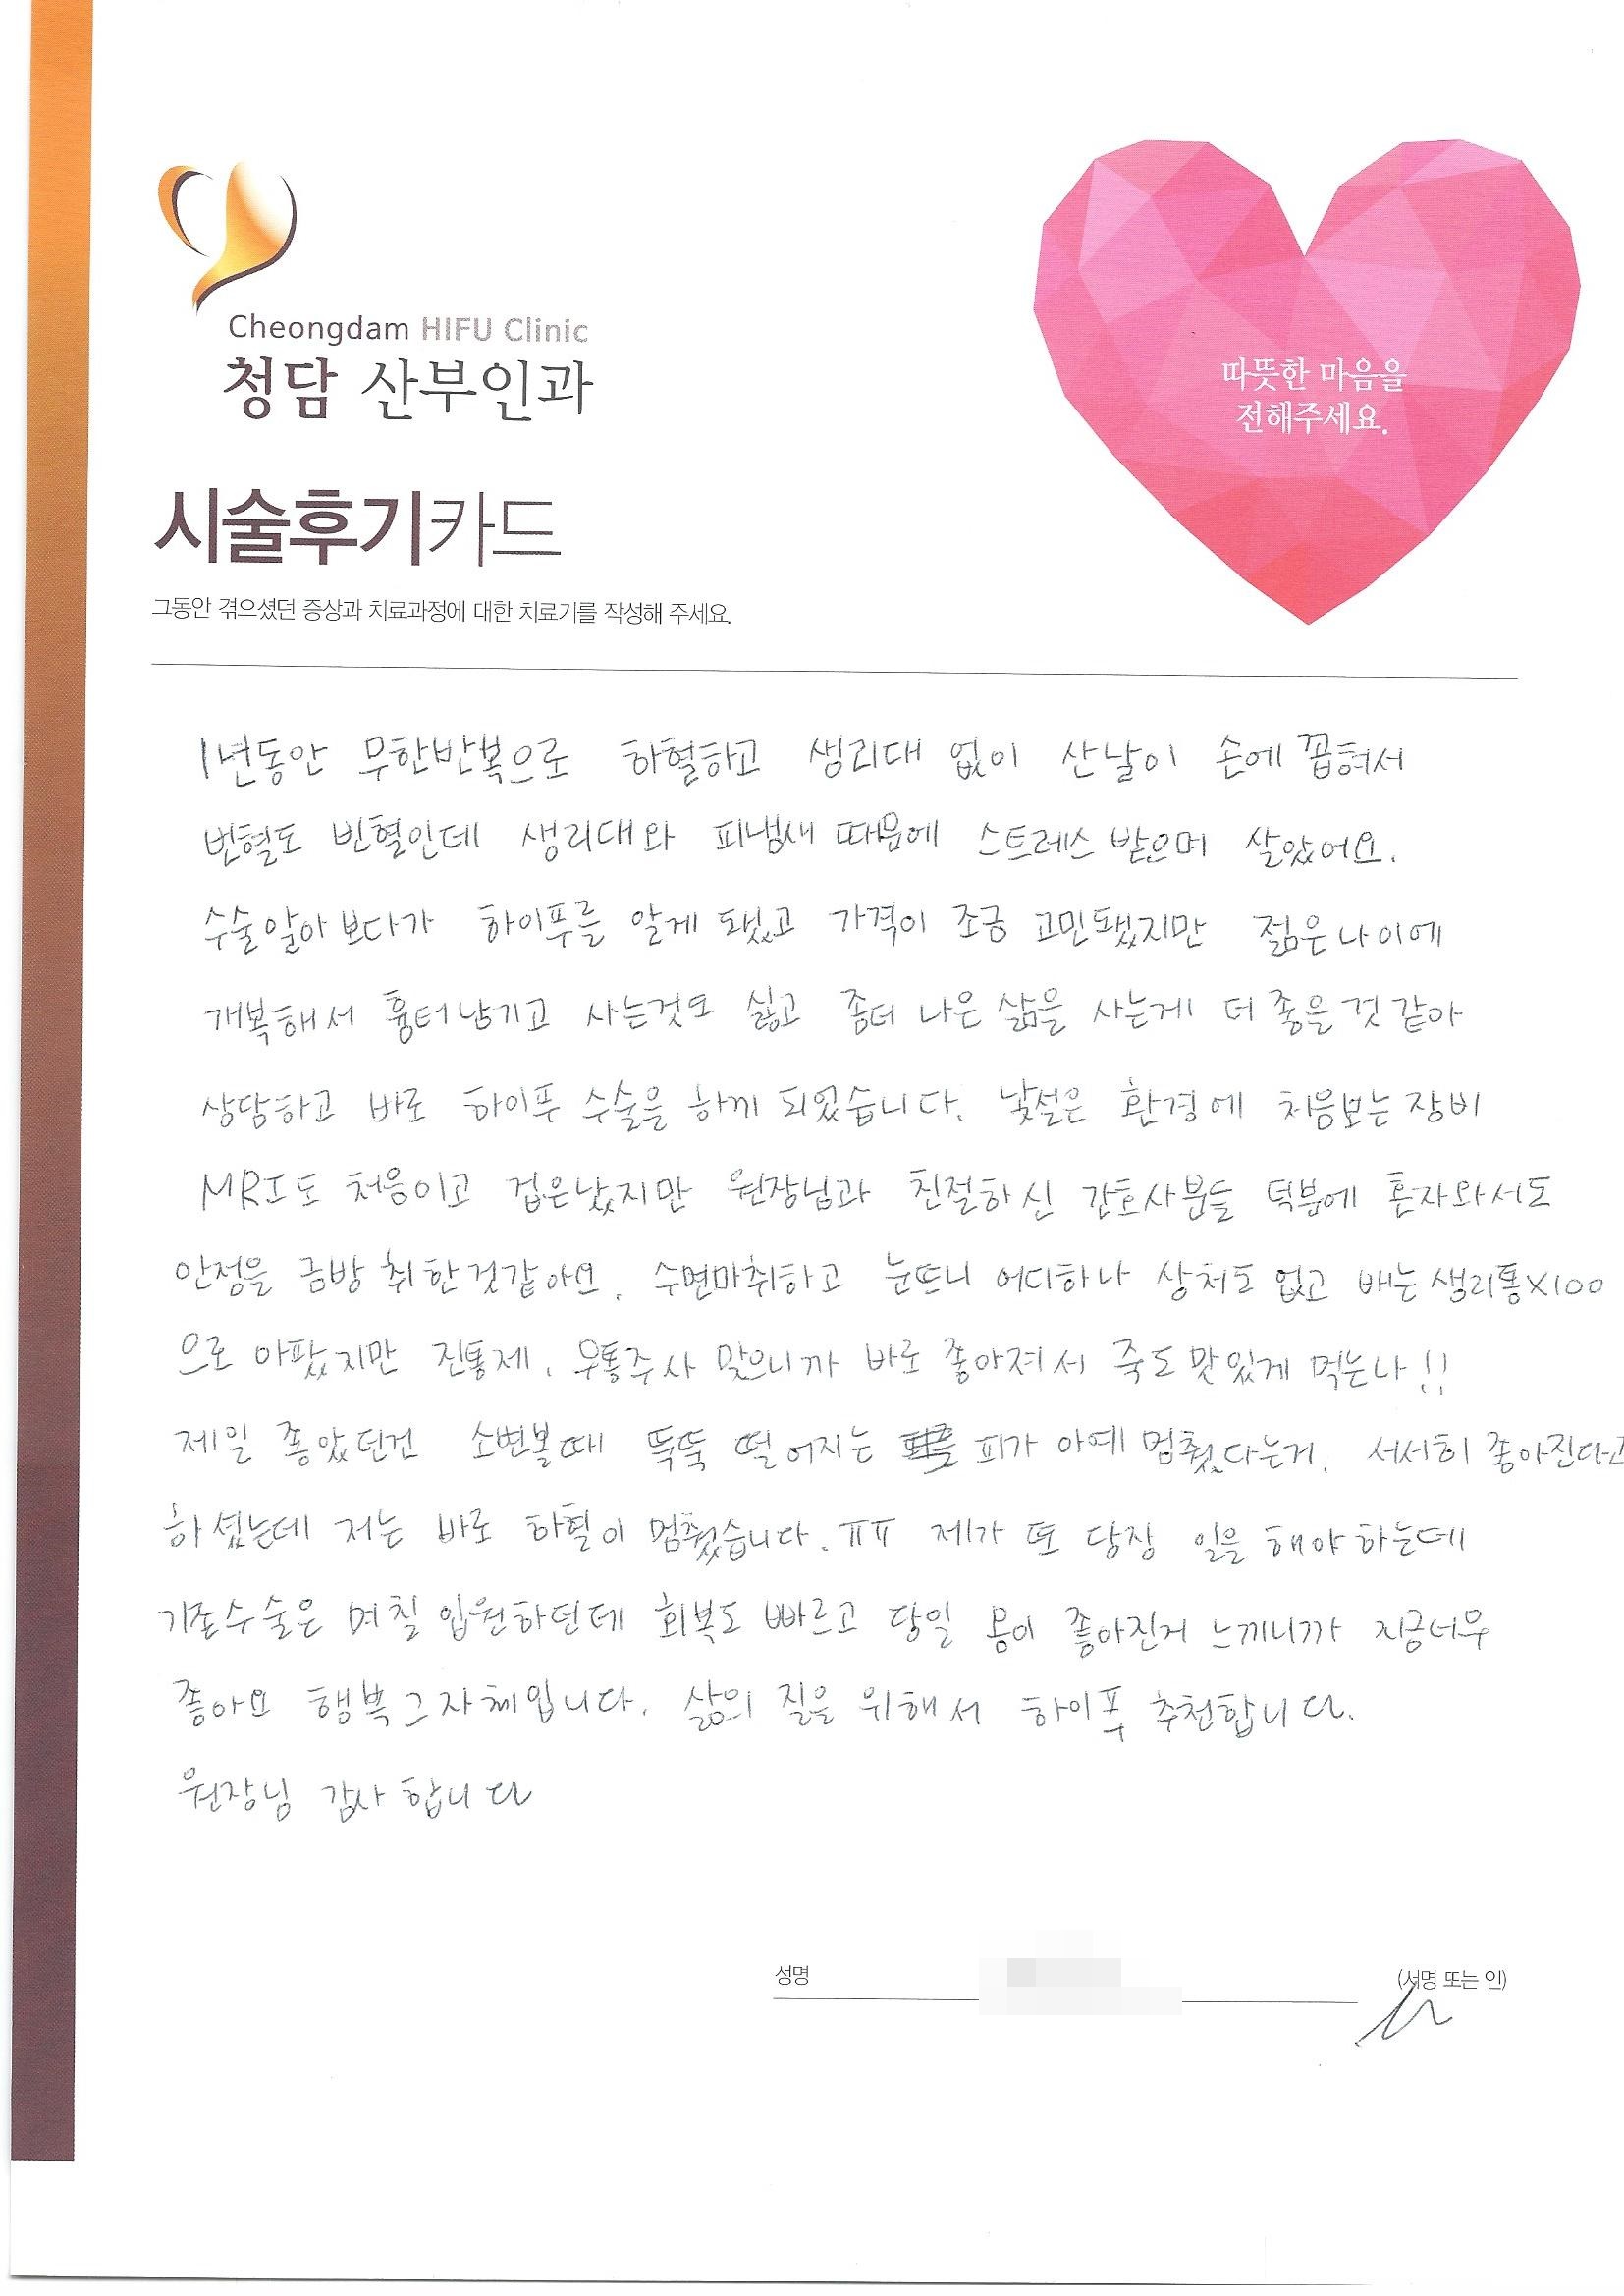 Cheongdam HIFU Clinic
청담 산부인과
따뜻한 마음을
전해주세요.
시술후기카드
그동안 겪으셨던 증상과 치료과정에 대한 치료기를 작성해 주세요.
1년동안 무한반복으로 하혈하고 생리대 없이 산날이 손에 꼽혀서
빈혈도 빈혈인데 생리대와 피냄새 때문에 스트레스 받으며 살았어요.
수술알아보다가 하이푸를 알게 됐고 가격이 조금 고민됐지만 젊은나이에
개복해서 흉터남기고 사는것도 싫고 좀더 나은 삶을 사는게 더 좋을것 같아
상담하고 바로 하이푸 수술을 하게 되었습니다. 낯설은 환경에 처음보는 장비
MRI도 처음이고 겁은났지만 원장님과 친절하신 간호사분들 덕분에 혼자와서도
안정을 금방 취한것같아요. 수면마취하고 눈뜨니 어디하나 상처도 없고 배는 생리통X100
으로 아팠지만 진통제, 무통주사 맞으니까 바로 좋아져서 죽도 맛있게 먹는나!!
제일 좋았던건 소변볼때 뚝뚝 떨어지는 피가 아예 멈췄다는거. 서서히 좋아진다고
하셨는데 저는 바로 하혈이 멈췄습니다.ㅠㅠ 제가 또 당장 일을 해야하는데
기존수술은 며칠 입원하던데 회복도 빠르고 당일 몸이 좋아진거 느끼니까 지금너무
좋아요 행복그자체입니다. 삶의 질을 위해서 하이푸 추천합니다.
원장님 감사합니다
성명 (서명 또는 인)